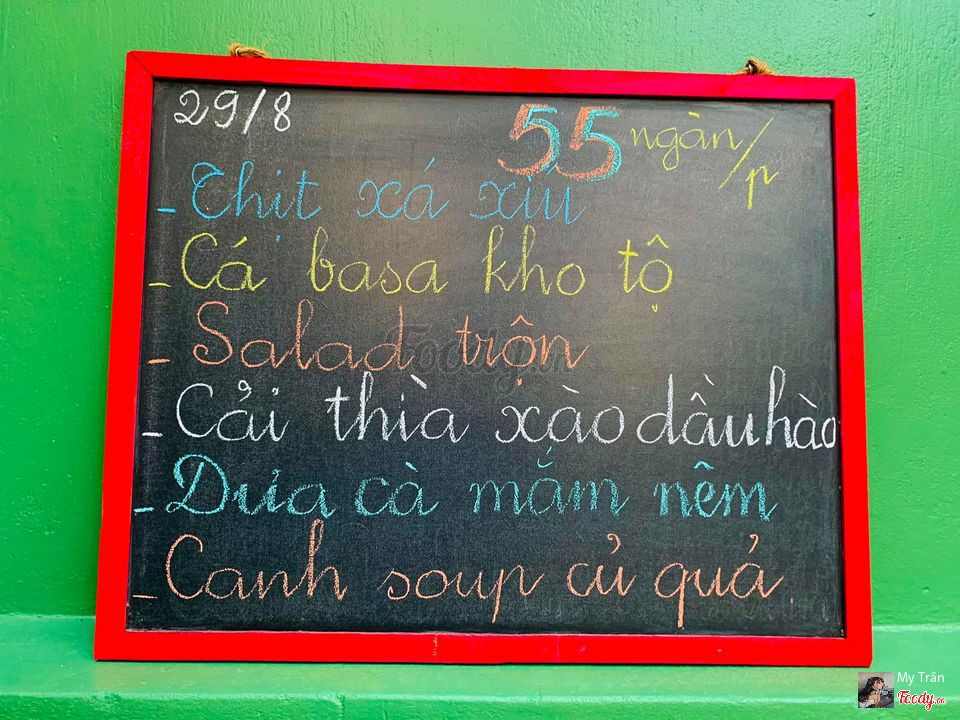 29/8
55 ngàn/p
- Thịt xá xíu
- Cá basa kho tộ
- Salad trộn
- Cải thìa xào dầu hào
- Dưa cà mắm nêm
- Canh soup củ quả.
Foody.vn
My Trân
Foody.vn